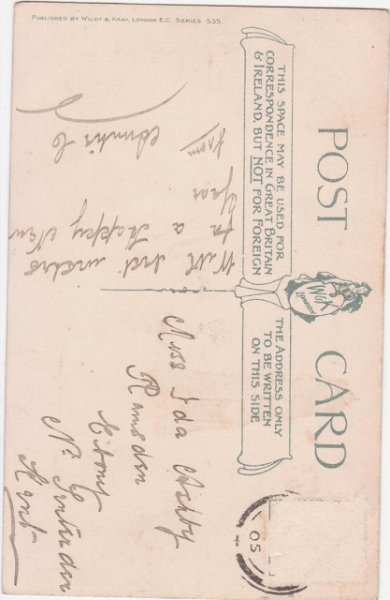 PUBLISHED BY WILDT & KRAY, LONDON E.C. SERIES 535.
POST CARD
THIS SPACE MAY BE USED FOR
CORRESPONDENCE IN GREAT BRITAIN
& IRELAND, BUT NOT FOR FOREIGN
W&K
LONDON
THE ADDRESS ONLY
TO BE WRITTEN
ON THIS SIDE
With best wishes
for a Happy New
Year
from
Miss Ida Ashby
Ramsden
Ebony
Nr Tenterden
Kent
05